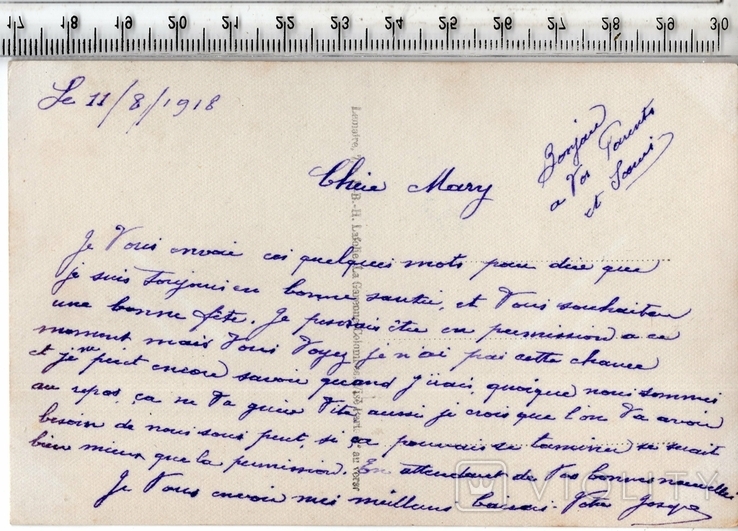 17 18 19 20 21 22 23 24 25 26 27 28 29 30
Le 11/8/1918
Bonjour
a Vos Parents
et Soeurs
Chère Mary
Je Vous envoie ces quelques mots pour dire que
je suis toujours en bonne santée, et Vous souhaiter
une bonne fête. Je pensais être en permission a ce
moment mais Vous Voyez je n'ai pas cette chance
et je ne peut encore savoir quand j'irais, quoique nous sommes
au repos, ça ne Va guère Vite, aussi je crois que l'on Va avoir
besoin de nous sous peut, si ça pouvais se terminer se serait
bien mieux que la permission. En attendant de Vos bonnes nouvelles
Je Vous envoie mes meilleurs baisers. Votre
VIOLITY